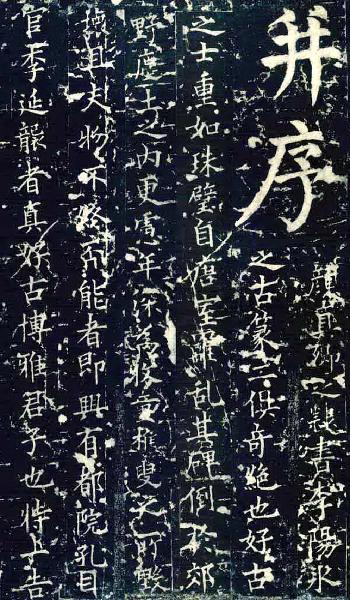 并序
顏真卿之隸書李陽氷
之古篆二俱奇絶也好古
之士重如珠璧自唐室離亂其碑倒於郊
野塵土之內更慮年深為牧童稚叟之所毀
且夫物不終否能者即興有都院孔目
官李延襲者真好古博雅君子也特上告